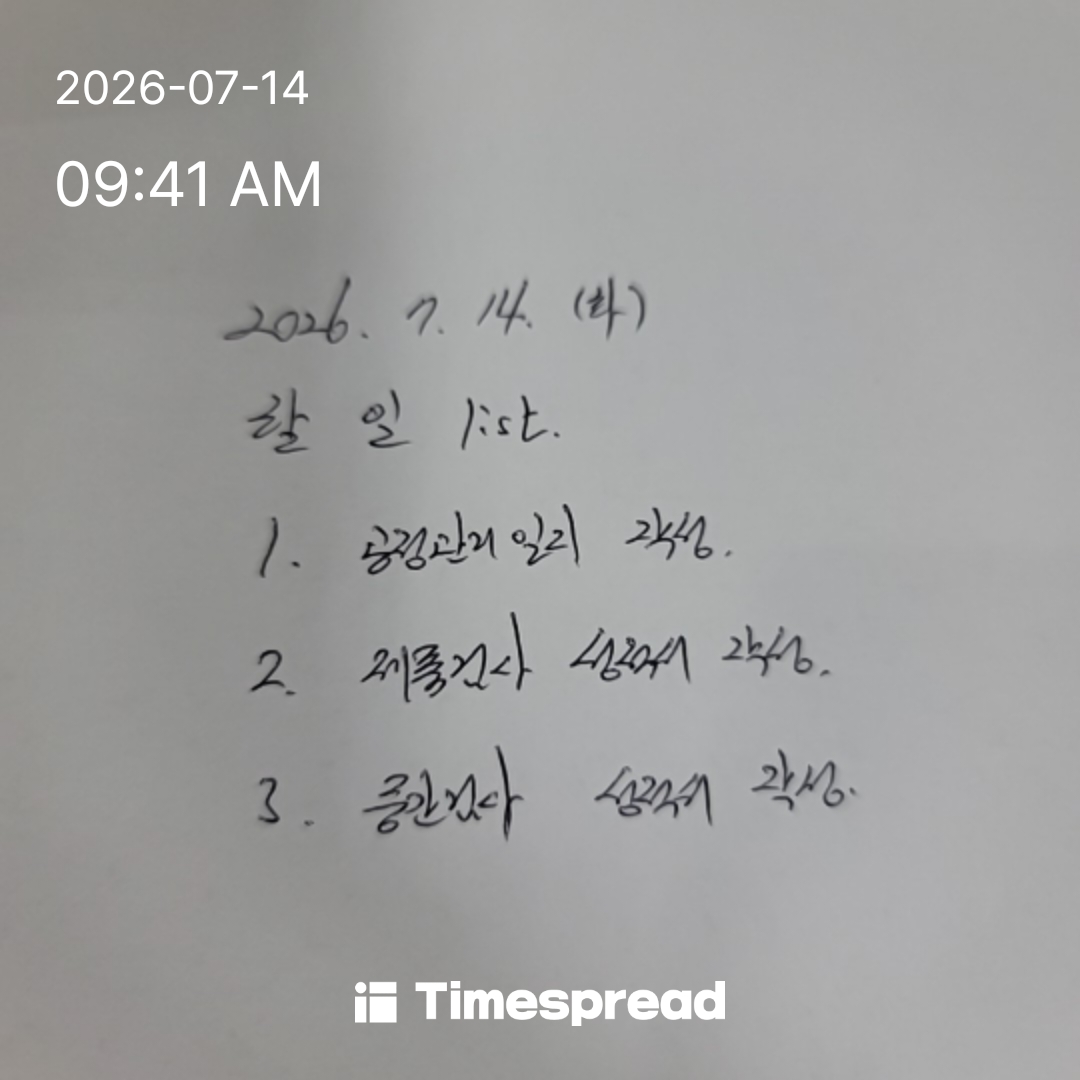 2026-07-14
09:41 AM
2026. 7. 14. (화)
할 일 list.
1. 공정관리일지 작성.
2. 제품검사 성적서 작성.
3. 중간검사 성적서 작성.
Timespread